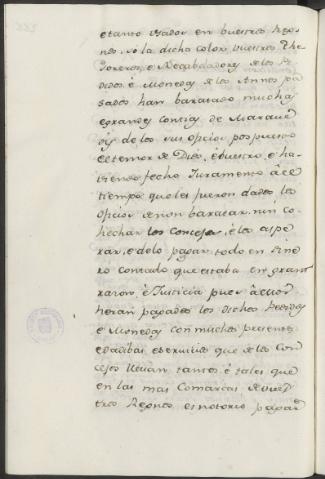 etanto Usador en buestros Regnos
nes. so la dicha color, buestros The
soreros, e Recabdadores de los Pe
didos é Monedas de los Annos pa
sados han baratado muchas
egrandes contias de Maraue
dis de los sus oficios, pospuesto
eltemor de Dios, ébuestro, e ha
viendo fecho Juramento àl
tiempo queles fueron dados los
oficios denon baratar, nin co
hechar los Concejos, é los aspe
rar, edelo pagar todo en dine
ro contado que estaba en gran
razon, é Justicia pues
heran pagados los dichos Pedidos
e Monedas con muchos presentes
edadibas eservicios que de los Con
cejos llevan tantos é tales que
en las mas Comarcas de vues
tros Regnos esnotorio pagar